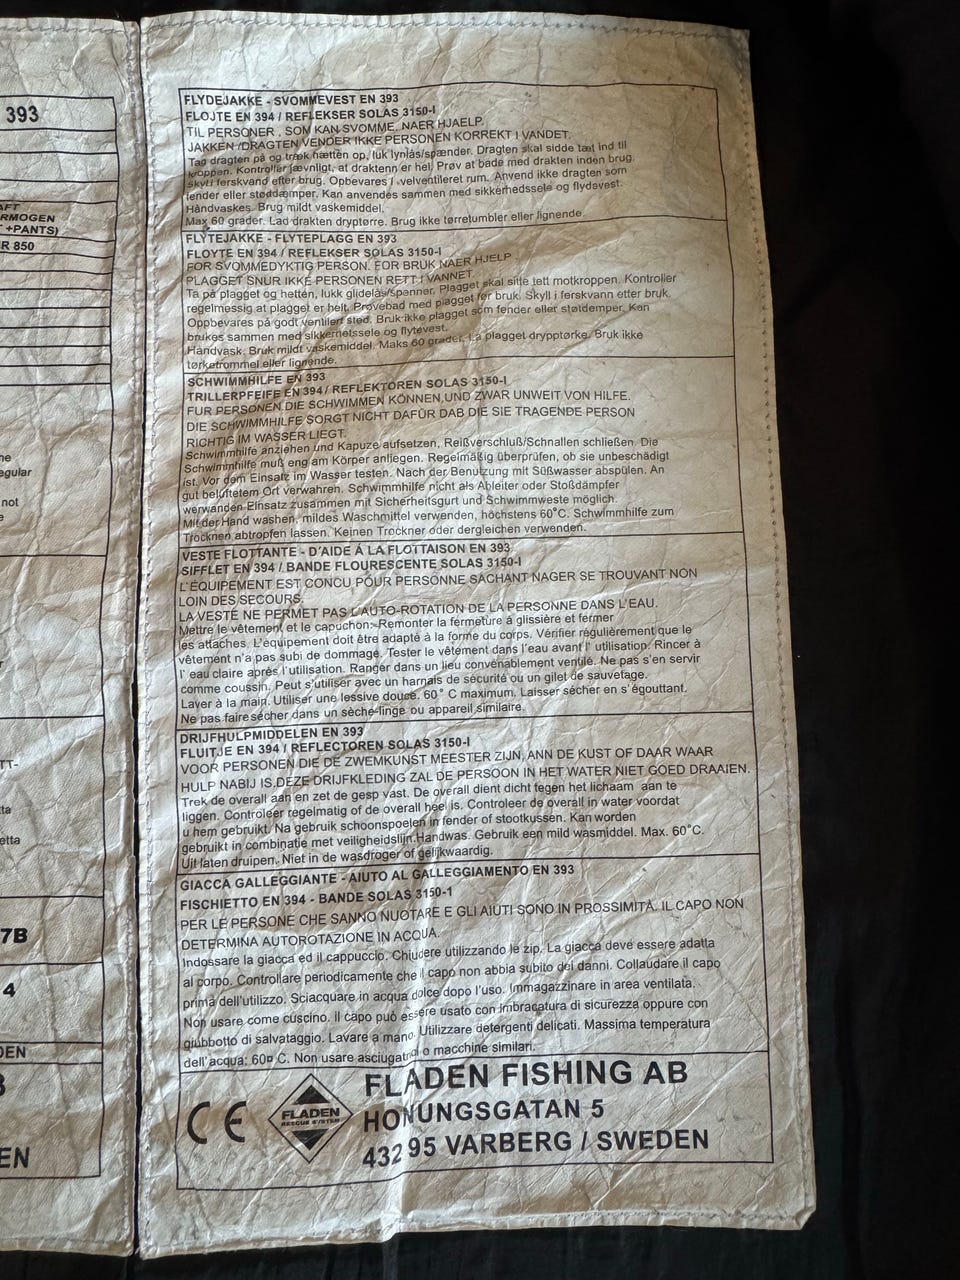 393
AFT
ERMOGEN
T +PANTS)
R 850
he
egular
not
e
r
TT-
ta
etta
7B
4
DEN
B
EN
FLYDEJAKKE - SVOMMEVEST EN 393
FLOJTE EN 394 / REFLEKSER SOLAS 3150-I
TIL PERSONER , SOM KAN SVOMME, NAER HJAELP.
JAKKEN /DRAGTEN VENDER IKKE PERSONEN KORREKT I VANDET.
Tag dragten på og træk hætten op, luk lynlås/spænder. Dragten skal sidde tæt ind til
kroppen. Kontroller jævnligt, at draktenn er hel. Prøv at bade med drakten inden brug.
skyl i ferskvand efter brug. Opbevares i velventileret rum. Anvend ikke dragten som
fender eller støddæmper. Kan anvendes sammen med sikkerhedssele og flydevest.
Håndvaskes. Brug mildt vaskemiddel.
Max 60 grader. Lad drakten dryptørre. Brug ikke tørretumbler eller lignende.
FLYTEJAKKE - FLYTEPLAGG EN 393
FLOYTE EN 394 / REFLEKSER SOLAS 3150-I
FOR SVOMMEDYKTIG PERSON. FOR BRUK NAER HJELP
PLAGGET SNUR IKKE PERSONEN RETT I VANNET.
Ta på plagget og hetten, lukk glidelås/spenner. Plagget skal sitte tett motkroppen. Kontroller
regelmessig at plagget er helt. Prøvebad med plagget før bruk. Skyll i ferskvann etter bruk.
Oppbevares på godt ventilert sted. Bruk ikke plagget som fender eller støtdemper. Kan
brukes sammen med sikkerhetssele og flytevest.
Håndvask. Bruk mildt vaskemiddel. Maks 60 grader. La plagget drypptørke. Bruk ikke
tørketrommel eller lignende.
SCHWIMMHILFE EN 393
TRILLERPFEIFE EN 394 / REFLEKTOREN SOLAS 3150-I
FUR PERSONEN,DIE SCHWIMMEN KÖNNEN,UND ZWAR UNWEIT VON HILFE.
DIE SCHWIMMHILFE SORGT NICHT DAFÜR DAB DIE SIE TRAGENDE PERSON
RICHTIG IM WASSER LIEGT.
Schwimmhilfe anziehen und Kapuze aufsetzen, Reißverschluß/Schnallen schließen. Die
Schwimmhilfe muß eng am Körper anliegen. Regelmäßig überprüfen, ob sie unbeschädigt
ist. Vor dem Einsatz im Wasser testen. Nach der Benutzung mit Süßwasser abspülen. An
gut belüftetem Ort verwahren. Schwimmhilfe nicht als Ableiter oder Stoßdämpfer
verwanden Einsatz zusammen mit Sicherheitsgurt und Schwimmweste möglich.
Mit der Hand washen, mildes Waschmittel verwenden, höchstens 60°C. Schwimmhilfe zum
Trocknen abtropfen lassen. Keinen Trockner oder dergleichen verwenden.
VESTE FLOTTANTE - D'AIDE Á LA FLOTTAISON EN 393
SIFFLET EN 394 / BANDE FLOURESCENTE SOLAS 3150-I
L'ÉQUIPEMENT EST CONCU PÓUR PERSONNE SACHANT NAGER SE TROUVANT NON
LOIN DES SECOURS.
LA VESTE NE PERMET PAS L'AUTO-ROTATION DE LA PERSONNE DANS L'EAU.
Mettre le vêtement et le capuchon. Remonter la fermeture á glissière et fermer
les attaches. L'équipement doit être adapté à la forme du corps. Vérifier régulièrement que le
vêtement n'a pas subi de dommage. Tester le vêtement dans l'eau avant l' utilisation. Rincer à
l' eau claire après l'utilisation. Ranger dans un lieu convenablement ventilé. Ne pas s'en servir
comme coussin. Peut s'utiliser avec un harnais de sécurité ou un gilet de sauvetage.
Laver à la main. Utiliser une lessive douce. 60° C maximum. Laisser sécher en s'égouttant.
Ne pas faire sécher dans un sèche-linge ou appareil similaire.
DRIJFHULPMIDDELEN EN 393
FLUITJE EN 394 / REFLECTOREN SOLAS 3150-I
VOOR PERSONEN DIE DE ZWEMKUNST MEESTER ZIJN, ANN DE KUST OF DAAR WAAR
HULP NABIJ IS.DEZE DRIJFKLEDING ZAL DE PERSOON IN HET WATER NIET GOED DRAAIEN.
Trek de overall aan en zet de gesp vast. De overall dient dicht tegen het lichaam aan te
liggen. Controleer regelmatig of de overall heel is. Controleer de overall in water voordat
u hem gebruikt. Na gebruik schoonspoelen in fender of stootkussen. Kan worden
gebruikt in combinatie met veiligheidslijn.Handwas. Gebruik een mild wasmiddel. Max. 60°C.
Uit laten druipen. Niet in de wasdroger of gelijkwaardig.
GIACCA GALLEGGIANTE - AIUTO AL GALLEGGIAMENTO EN 393
FISCHIETTO EN 394 - BANDE SOLAS 3150-1
PER LE PERSONE CHE SANNO NUOTARE E GLI AIUTI SONO IN PROSSIMITÀ. IL CAPO NON
DETERMINA AUTOROTAZIONE IN ACQUA.
Indossare la giacca ed il cappuccio. Chiudere utilizzando le zip. La giacca deve essere adatta
al corpo. Controllare periodicamente che il capo non abbia subito dei danni. Collaudare il capo
prima dell'utilizzo. Sciacquare in acqua dolce dopo l'uso. Immagazzinare in area ventilata.
Non usare come cuscino. Il capo può essere usato con imbracatura di sicurezza oppure con
giubbotto di salvataggio. Lavare a mano. Utilizzare detergenti delicati. Massima temperatura
dell'acqua: 60º C. Non usare asciugatrici o macchine similari.
CE
FLADEN
RESCUE SYSTEM
FLADEN FISHING AB
HONUNGSGATAN 5
432 95 VARBERG / SWEDEN